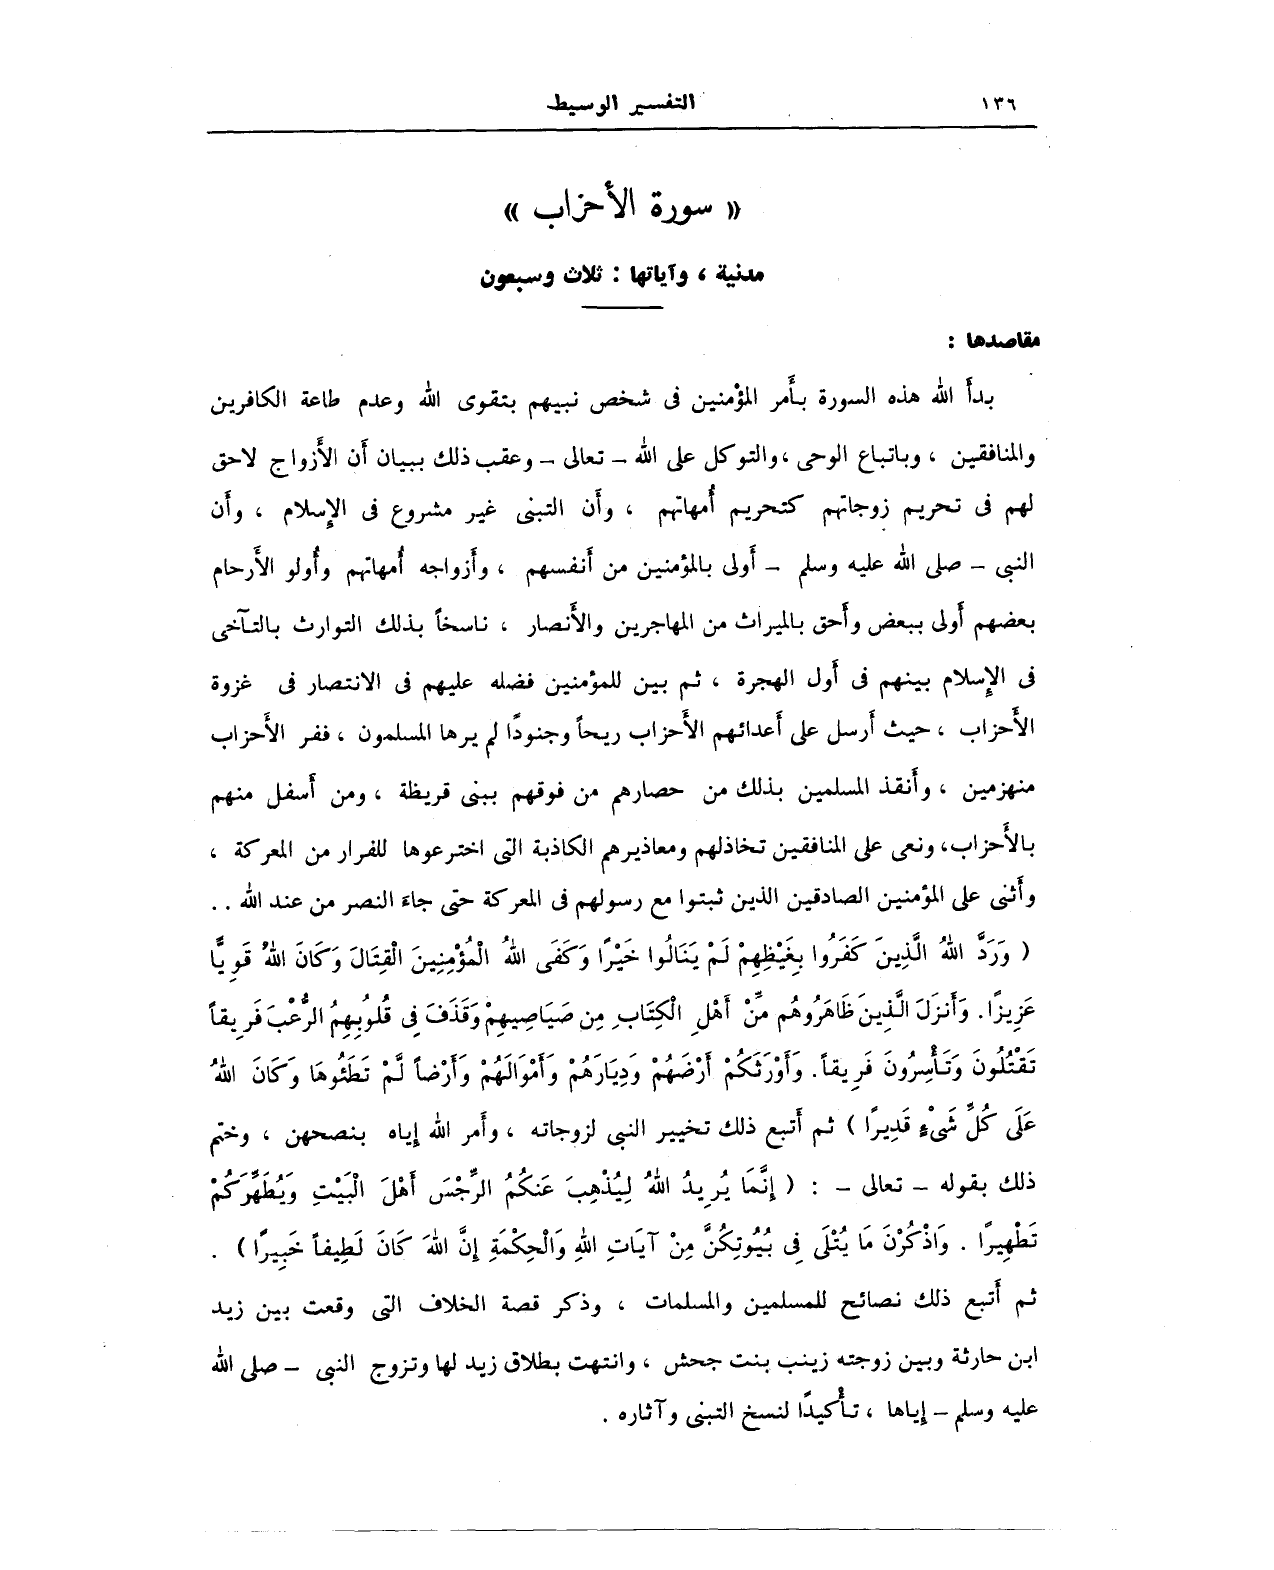 ١٣٦ التفسير الوسيط
« سورة الأحزاب »
مدنية ، وآياتها : ثلاث وسبعون
مقاصدها :
بدأَ الله هذه السورة بأَمر المؤْمنين فى شخص نبيهم بتقوى الله وعدم طاعة الكافرين
والمنافقين ، وباتباع الوحى ، والتوكل على الله – تعالى – وعقب ذلك ببيان أَن الأَزواج لاحق
لهم فى تحريم زوجاتهم كتحريم أُمهاتهم ، وأَن التبنى غير مشروع فى الإِسلام ، وأَن
النبى – صلى الله عليه وسلم – أَولى بالمؤمنين من أَنفسهم ، وأَزواجه أُمهاتهم وأُولو الأَرحام
بعضهم أَولى ببعض وأَحق بالميراث من المهاجرين والأَنصار ، ناسخاً بذلك التوارث بالتآخى
فى الإِسلام بينهم فى أَول الهجرة ، ثم بين للمؤمنين فضله عليهم فى الانتصار فى غزوة
الأَحزاب ، حيث أَرسل على أَعدائهم الأَحزاب ريحاً وجنودًا لم يرها المسلمون ، ففر الأَحزاب
منهزمين ، وأَنقذ المسلمين بذلك من حصارهم من فوقهم ببنى قريظة ، ومن أَسفل منهم
بالأَحزاب، ونعى على المنافقين تخاذلهم ومعاذيرهم الكاذبة التى اخترعوها للفرار من المعركة ،
وأَثنى على المؤمنين الصادقين الذين ثبتوا مع رسولهم فى المعركة حتى جاءَ النصر من عند الله ..
( وَرَدَّ اللهُ الَّذِينَ كَفَرُوا بِغَيْظِهِمْ لَمْ يَنَالُوا خَيْرًا وَكَفَى اللهُ الْمُؤْمِنِينَ الْقِتَالَ وَكَانَ اللهُ قَوِيًّا
عَزِيزًا. وَأَنزَلَ الَّذِينَ ظَاهَرُوهُم مِّنْ أَهْلِ الْكِتَابِ مِن صَيَاصِيهِمْ وَقَذَفَ فِى قُلُوبِهِمُ الرُّعْبَ فَرِيقاً
تَقْتُلُونَ وَتَأْسِرُونَ فَرِيقاً. وَأَوْرَثَكُمْ أَرْضَهُمْ وَدِيَارَهُمْ وَأَمْوَالَهُمْ وَأَرْضاً لَّمْ تَطَئُوهَا وَكَانَ اللهُ
عَلَى كُلِّ شَىْءٍ قَدِيرًا ) ثم أَتبع ذلك تخيير النبى لزوجاته ، وأَمر الله إياه بنصحهن ، وختم
ذلك بقوله – تعالى – : ( إِنَّمَا يُرِيدُ اللهُ لِيُذْهِبَ عَنكُمُ الرِّجْسَ أَهْلَ الْبَيْتِ وَيُطَهِّرَكُمْ
تَطْهِيرًا . وَاذْكُرْنَ مَا يُتْلَى فِى بُيُوتِكُنَّ مِنْ آيَاتِ اللهِ وَالْحِكْمَةِ إِنَّ اللهَ كَانَ لَطِيفاً خَبِيرًا ) .
ثم أَتبع ذلك نصائح للمسلمين والمسلمات ، وذكر قصة الخلاف التى وقعت بين زيد
ابن حارثة وبين زوجته زينب بنت جحش ، وانتهت بطلاق زيد لها وتزوج النبى – صلى الله
عليه وسلم – إياها ، تأْكيدًا لنسخ التبنى وآثاره .